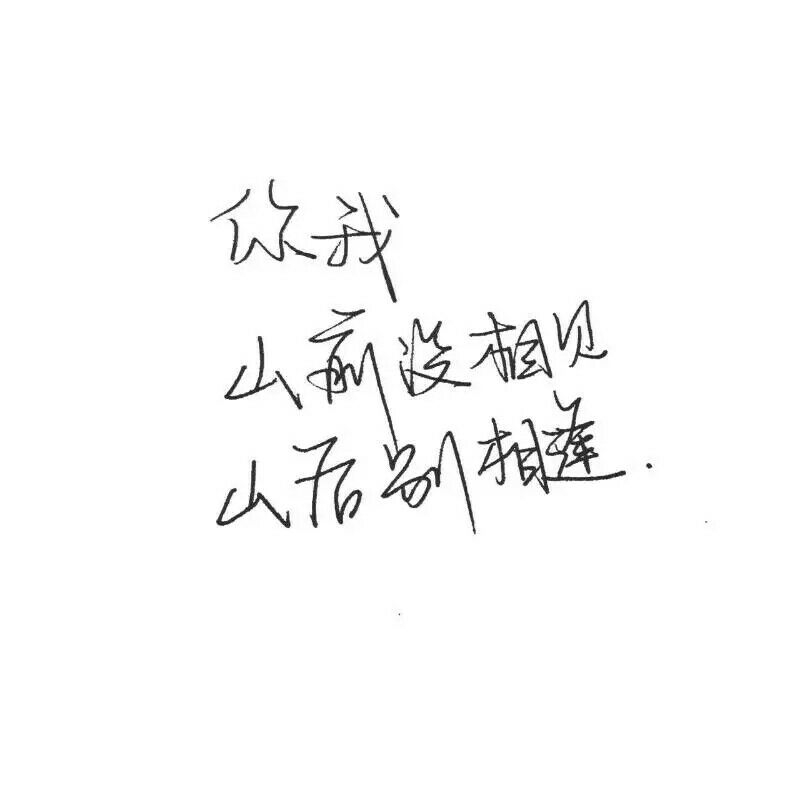 你我
山前没相见
山后别相逢.